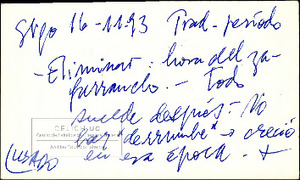 Stgo 16-11-93 Trad-período
- Eliminar: hora del za-
farrancho. - Todo
sucede después - No
hay "derrumbe" → creció
en esa época. +
CELICH UC